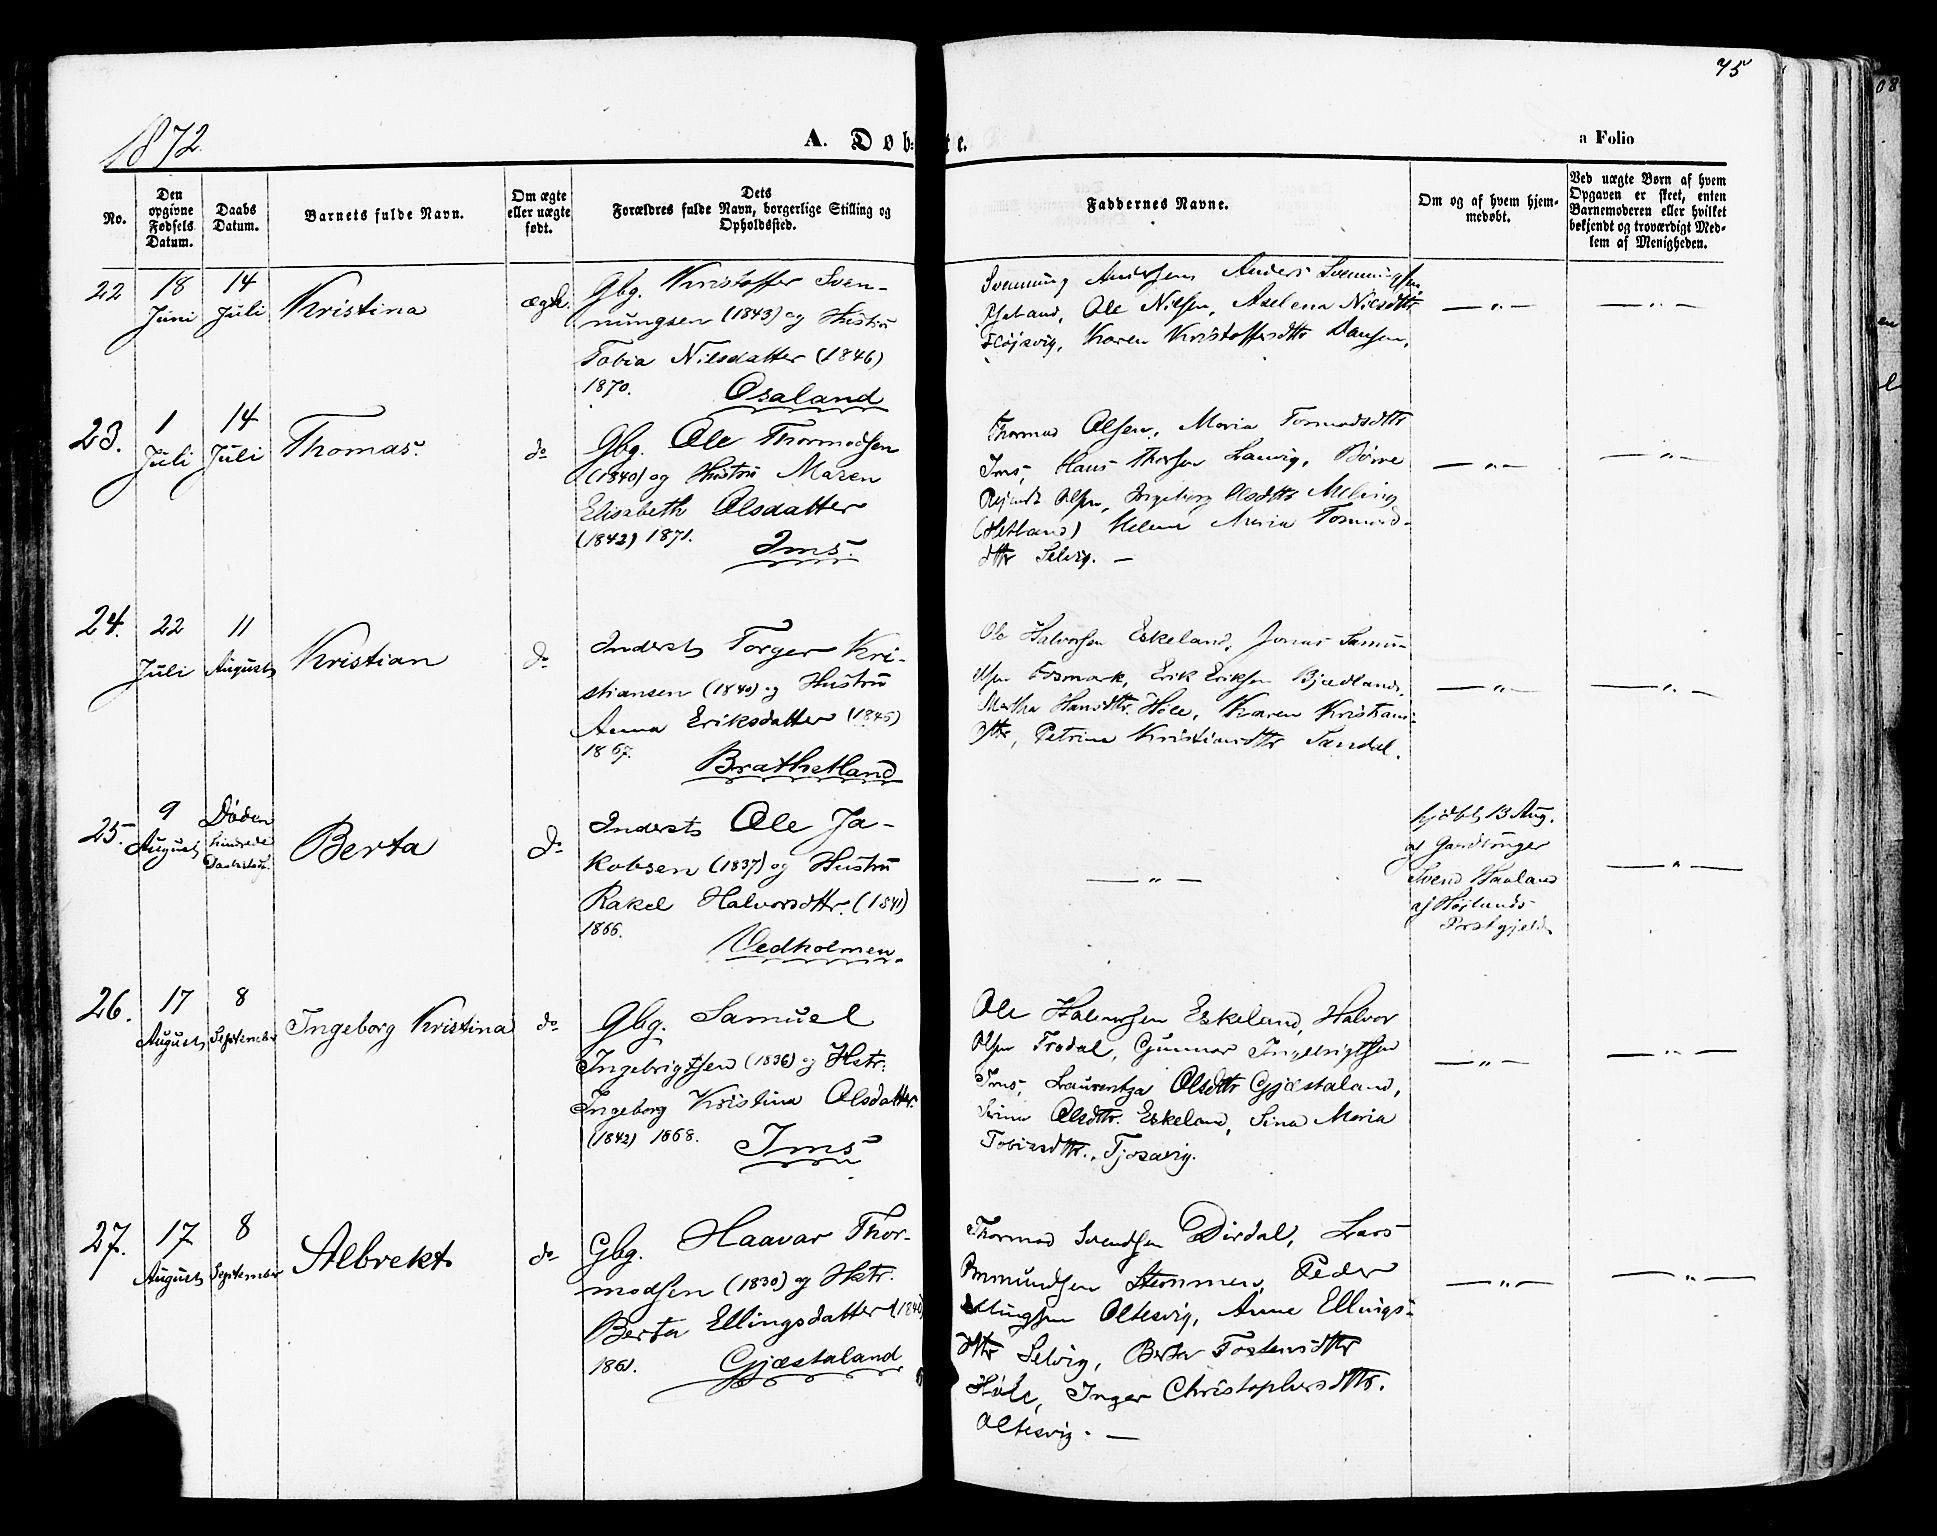 75
1872.
A. Døbte.
a Folio
No.
Den opgivne Fødsels Datum.
Daabs Datum.
Barnets fulde Navn.
Om ægte eller uægte født.
Dets Forældres fulde Navn, borgerlige Stilling og Opholdssted.
Faddernes Navne.
Om og af hvem hjemmedøbt.
Ved uægte Børn af hvem Opgaven er skeet, enten Barnemoderen eller hvilket bekjendt og troværdigt Medlem af Menigheden.
22
18 Juni
14 Juli
Kristina
ægte.
Gbg. Kristoffer Sven-
nungsen (1843) og Hustru
Tobia Nilsdatter (1846)
1870. Osaland
Svennung Andersen Anders Svenningsen
Ole Nilsen, Axelena Nilsdttr
Karen Kristoffersdttr
— " —
— " —
23.
1 Juli
14 Juli
Thomas.
do
Gbg. Ole Thormodsen
(1840) og Hustru Maren
Elisabeth Olsdatter
(1842) 1871. Ims.
Thormod Olsen, Maria Tormodsdttr
Ims, Hans Thorsen Lauvig, Børre
Olsen, Ingeborg Olsdttr Meling
(Hetland) Helene Maria Tormods-
dttr Selvig. —
— " —
— " —
24.
22 Juli
11 August
Kristian
do
Inderst Torger Kri-
stiansen (1840) og Hustru
Anna Eriksdatter (1845)
1867. Brathetland
Ole Halvorsen Eskeland, Jonas Samu-
elsen Fosmark, Erik Eriksen Bjødland,
Martha Hansdttr. Høle, Karen Kristians-
dttr, Petrine Kristiansdttr Sandal.
— " —
— " —
25.
9 August
Døden hindrede
Berta
do
Inderst Ole Ja-
kobsen (1837) og Hustru
Rakel Halvorsdttr. (1841)
1866. Vedholmen
— " —
hjdbt 13 Aug.
af Gaardbruger
Svend Haaland
af Høilands
Prstgjeld
— " —
26.
17 August
8 September
Ingeborg Kristina
do
Gbg. Samuel
Ingebrigtsen (1836) og Hstr.
Ingeborg Kristina Olsdatter
(1842) 1868. Ims
Ole Halvorsen Eskeland, Halvor
Olsen Frodal, Gunnar Ingebrigtsen
Ims, Laurentza Olsdttr Gjæstaland,
Serina Olsdttr. Eskeland, Sina Maria
Tobiasdttr. Tjosavig.
— " —
— " —
27.
17 August
8 September
Albrekt
do
Gbg. Haavar Thor-
modsen (1830) og Hstr.
Berta Ellingsdatter
1861. Gjæstaland
Thormod Svendsen Dirdal, Lars
Ommundsen Stemmen, Peder
Ellingsen Oltesvig, Anne Ellings-
dttr Selvig, Berta Tostensdttr
Høle, Inger Christophersdttr.
Oltesvig. —
— " —
— " —